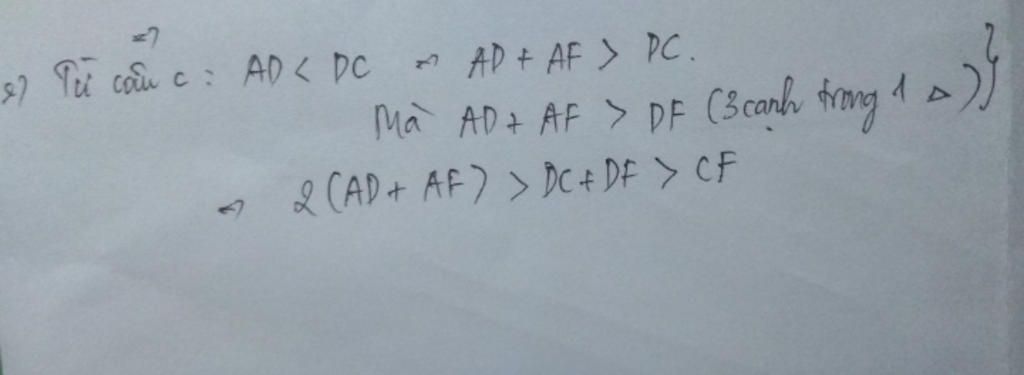 =>
e) Từ câu c : AD < DC => AD + AF > DC.
Mà AD + AF > DF (3 cạnh trong 1 Δ)}
=> 2(AD + AF) > DC + DF > CF